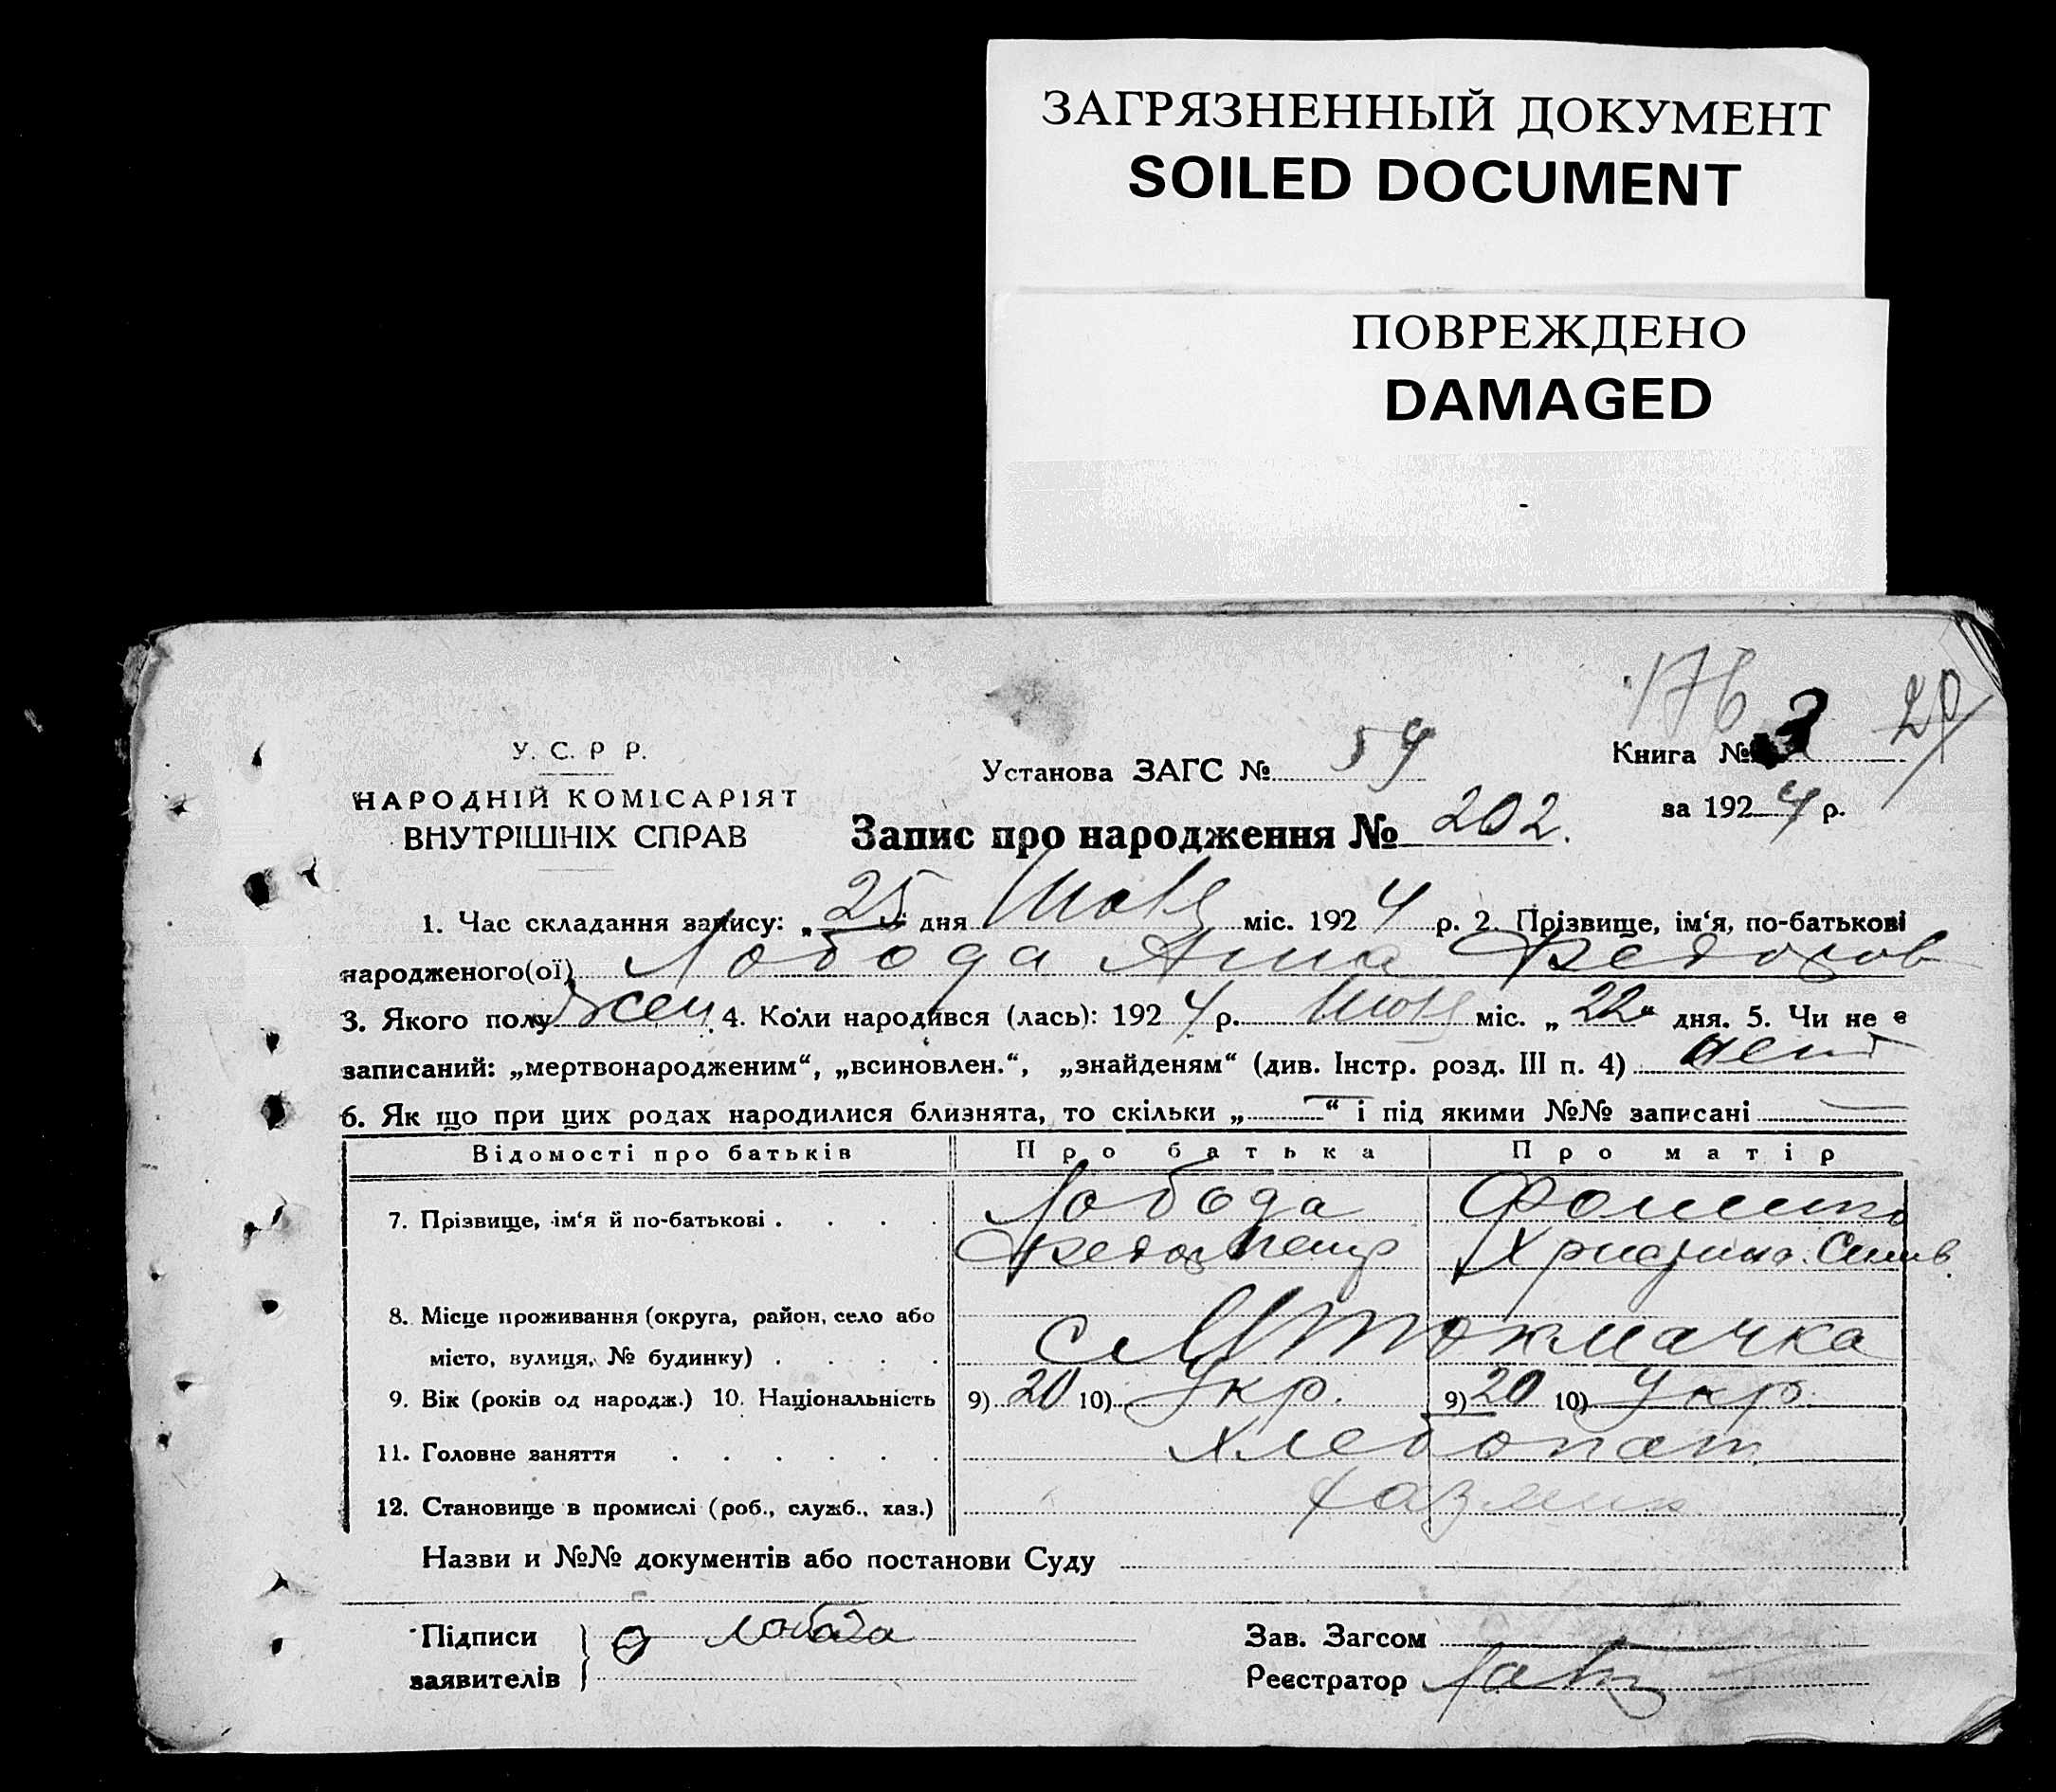 ЗАГРЯЗНЕННЫЙ ДОКУМЕНТ
SOILED DOCUMENT
ПОВРЕЖДЕНО
DAMAGED
176
У. С. Р Р.
Установа ЗАГС №
Книга № 3
НАРОДНІЙ КОМІСАРІЯТ
за 1924 р.
ВНУТРІШНІХ СПРАВ
Запис про народження № 202.
1. Час складання запису: „25“ дня міс. 1924 р. 2. Прізвище, ім‘я, по-батькові
народженого(ої) Лобода Анна Федоров
3. Якого полу жен. 4. Коли народився (лась): 1924 р. міс. „22“ дня. 5. Чи не є
записаний: „мертвонародженим“, „всиновлен.“, „знайденям“ (див. Інстр. розд. III п. 4) нет
6. Як що при цих родах народилися близнята, то скільки „—“ і під якими №№ записані —
Відомості про батьків Про батька Про матір
7. Прізвище, ім‘я й по-батькові . . . . Лобода
Федор Петр Христина
8. Місце проживання (округа, район, село або
місто, вулиця, № будинку) . . . . с М Токмачка
9. Вік (років од народж.) 10. Національність 9) 20 10) Укр. 9) 20 10) Укр.
11. Головне заняття . . . . . . Хлебопаш
12. Становище в промислі (роб., служб., хаз.)
Назви и №№ документів або постанови Суду
Підписи Лобода
заявителів
Зав. Загсом
Реєстратор